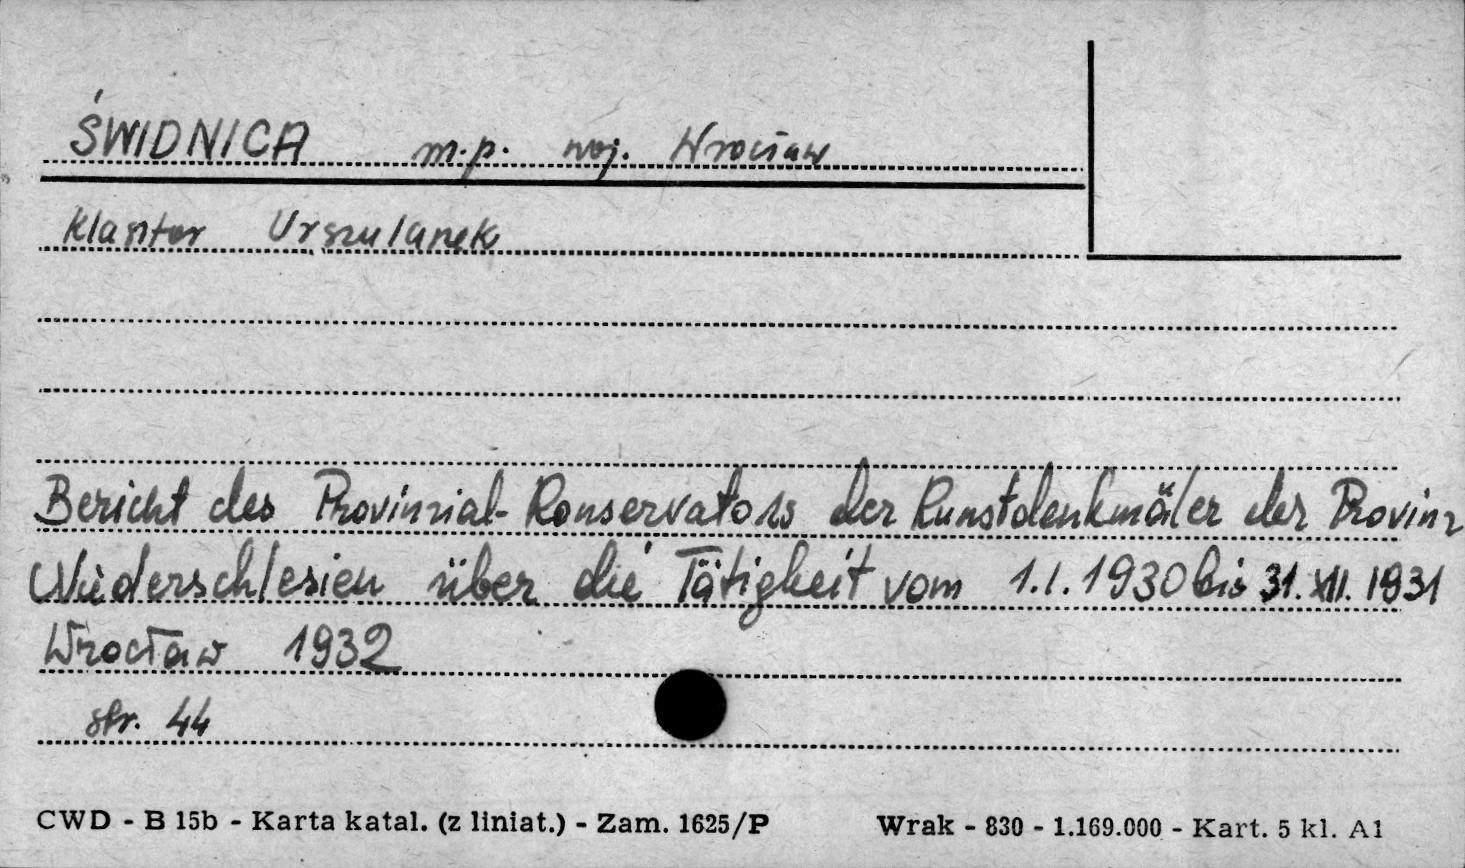 ŚWIDNICA m.p. woj. Wrocław
Klasztor Urszulanek
Bericht des Provinzial-Konservators der Kunstdenkmäler der Provinz
Niederschlesien über die Tätigkeit vom 1.I.1930 bis 31.XII.1931
Wrocław 1932
str. 44
CWD - B 15b - Karta katal. (z liniat.) - Zam. 1625/P Wrak - 830 - 1.169.000 - Kart. 5 kl. A1